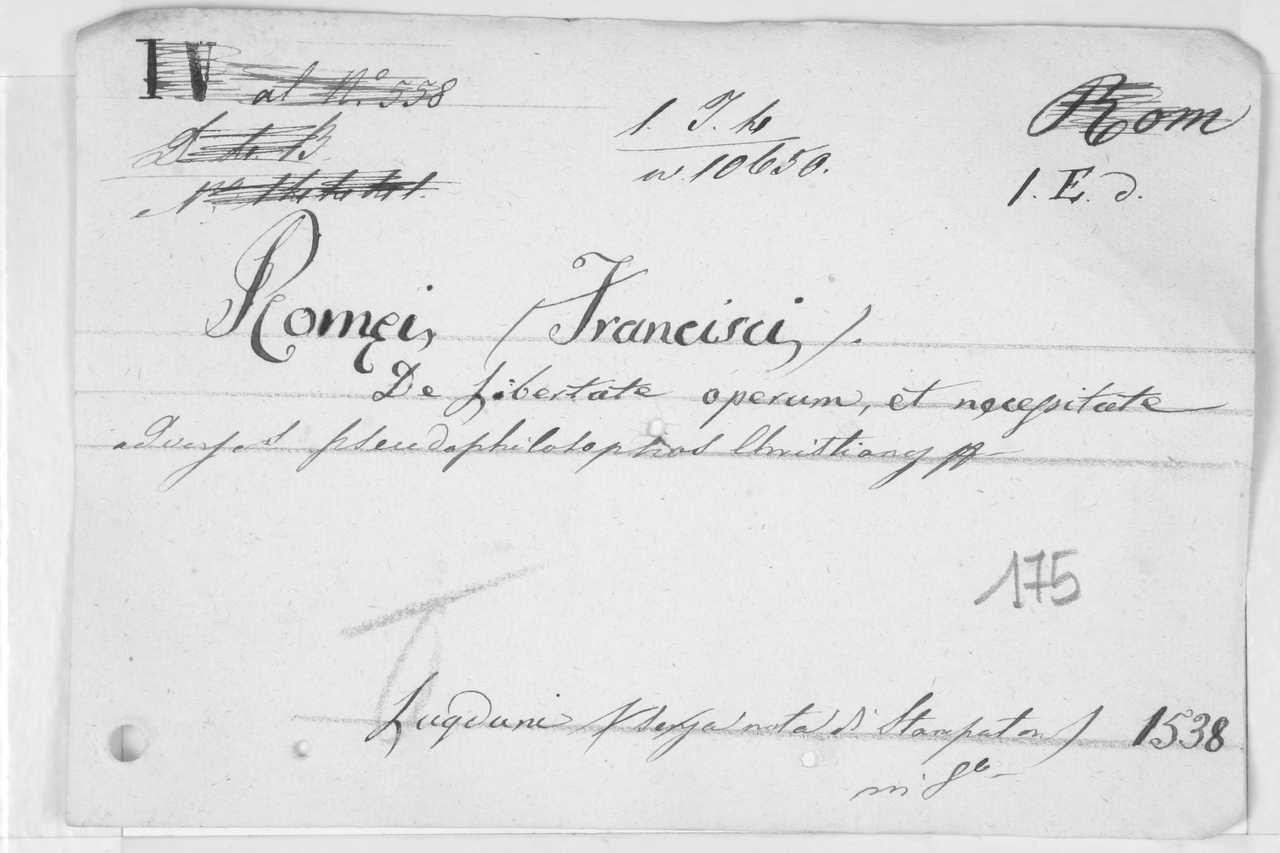 IV al N.º 558
D. te. B.
1. T. h
n. 10650.
Rom
1. E. d.
Romęi, (Francisci,).
De Libertate operum, et necessitate
adversus pseudophilosophos Christianos
175
Lugduni (senza nota di Stampator) 1538
in 8º